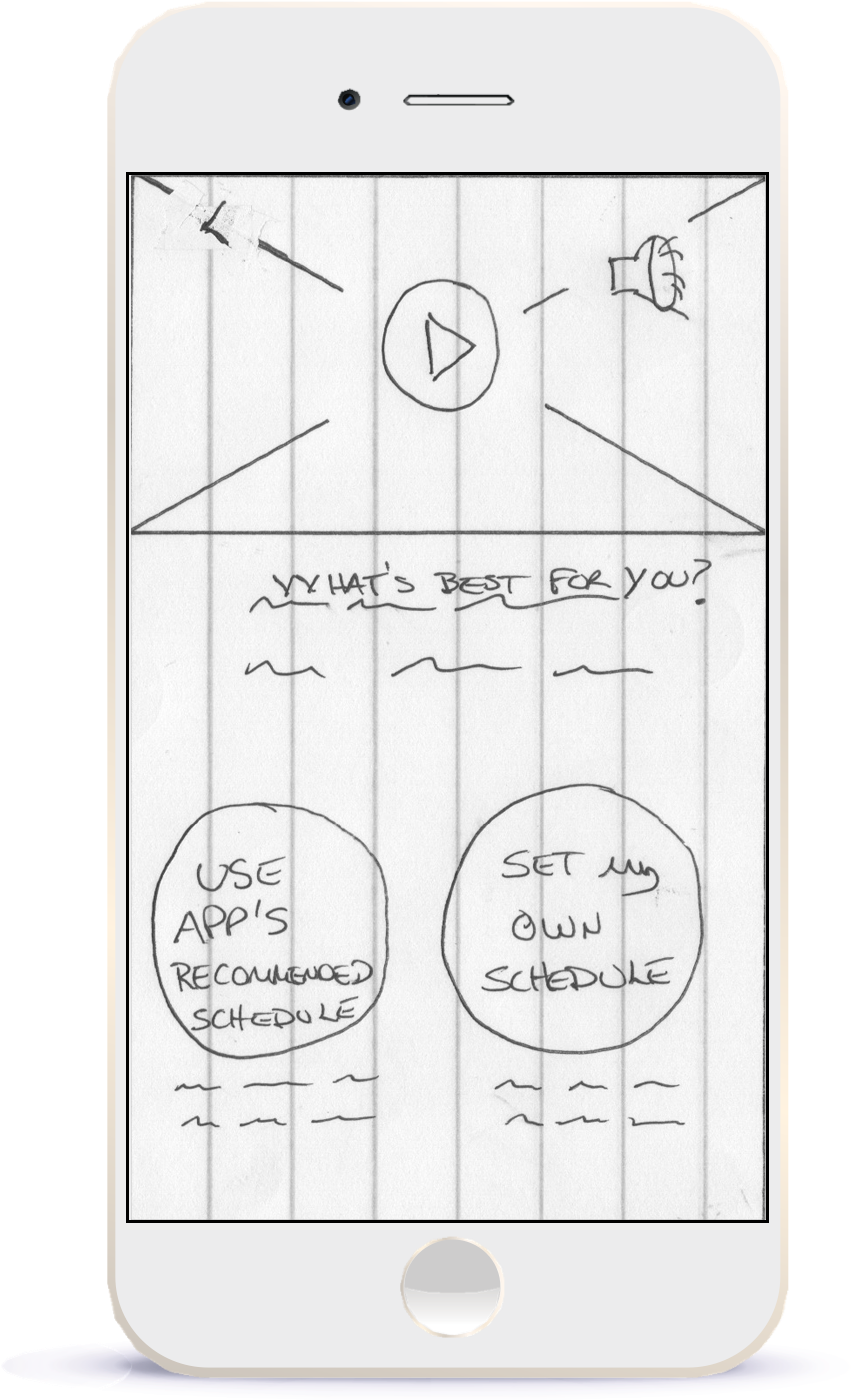 WHAT'S BEST FOR YOU?
USE
APP'S
RECOMMENDED
SCHEDULE
SET My
OWN
SCHEDULE